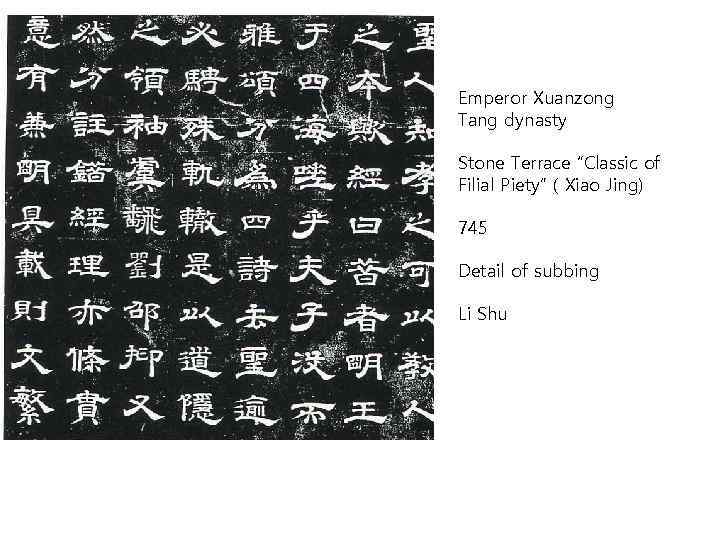 聖人知孝之可以教人
之本歟經曰昔者明王
于四海嗟乎夫子沒而
雅頌分為四詩去聖逾
必騁殊軌轍是以道隱
之領袖虞翻劉邵抑又
然分註錯經理亦條貫
意有兼明具載則文繁
Emperor Xuanzong
Tang dynasty
Stone Terrace “Classic of
Filial Piety” ( Xiao Jing)
745
Detail of subbing
Li Shu